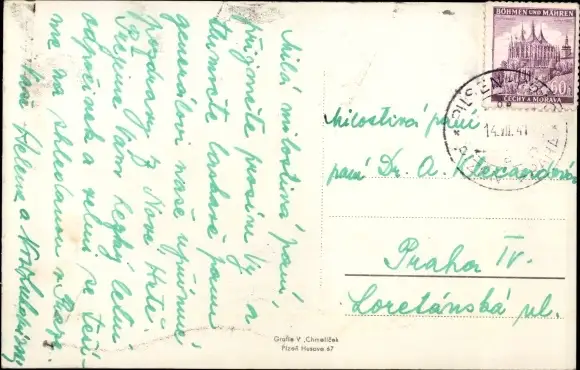 Milá milostivá paní,
přijměte prosím Vy a
tlumočte laskavě panu
generálovi naše upřímné
pozdravy z Nové Hutě.
Přejeme Vám hezký letní
odpočinek a velmi se těší-
me na shledanou v Praze.
Vaše Helena a
BÖHMEN UND MÄHREN
60
ČECHY A MORAVA
PILSEN
14.VII.41
PRAHA
Milostivá paní
paní Dr. A. Alexandrová
Praha IV.
Loretánská ul.
Grafie V. Chmelíček
Plzeň Husova 67